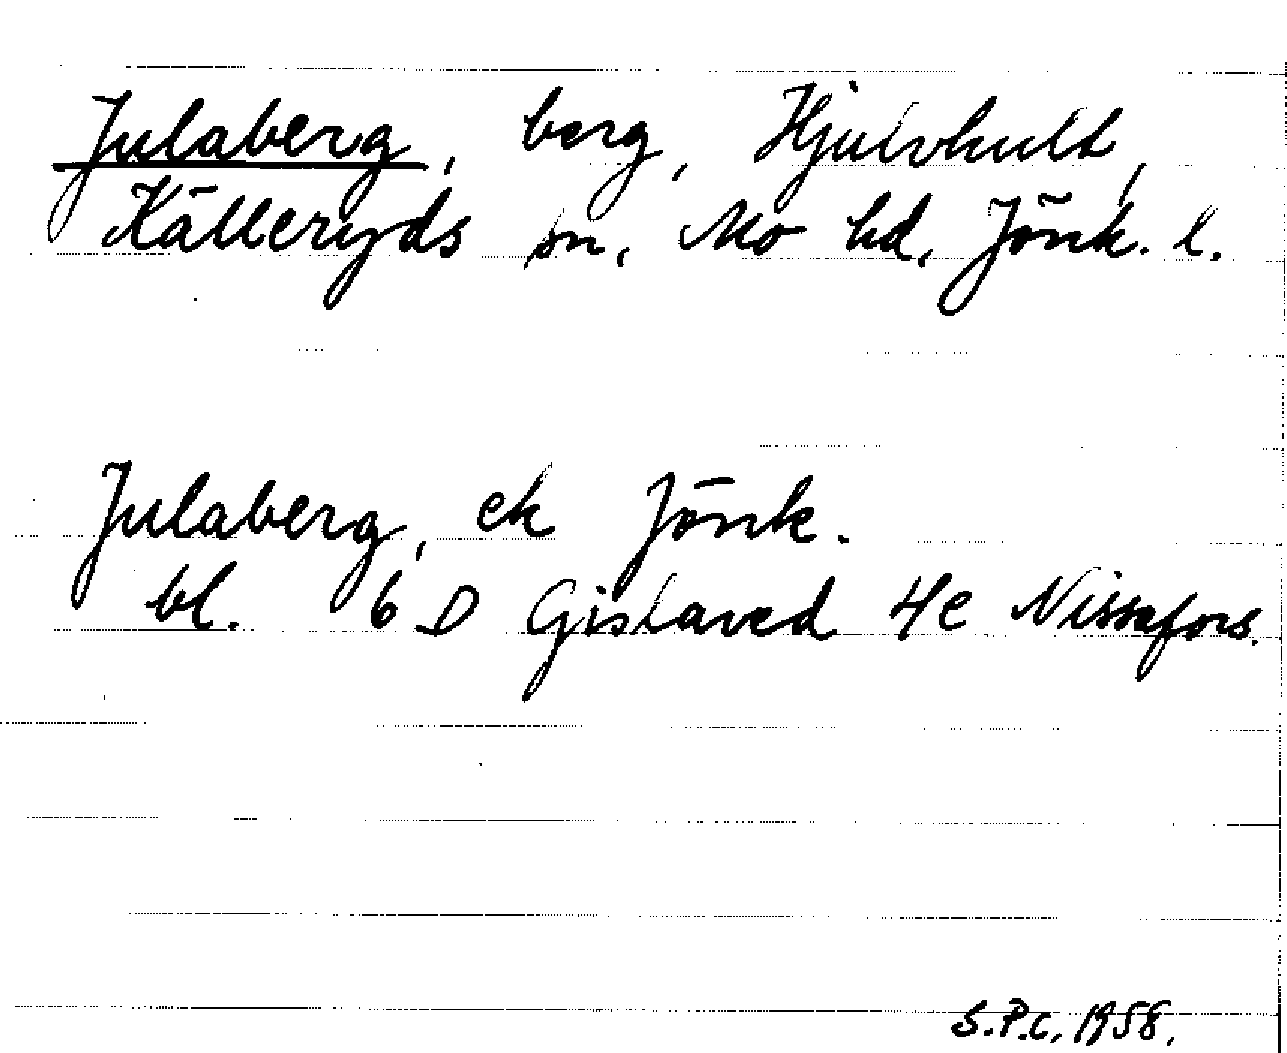 Julaberg, berg, Hjulvhult,
Källeryds sn, Mo hd, Jönk. l.
Julaberg, ek Jönk.
bl. 6 D Gislaved 4e Nissafors.
S.P.C. 1958.